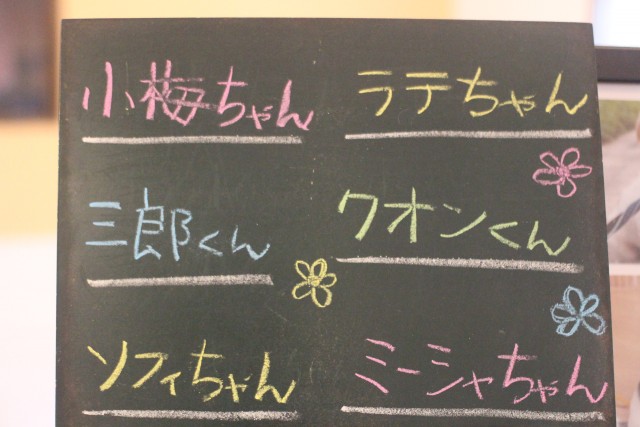 小梅ちゃん
ラテちゃん
三郎くん
クオンくん
ソフィちゃん
ミーシャちゃん